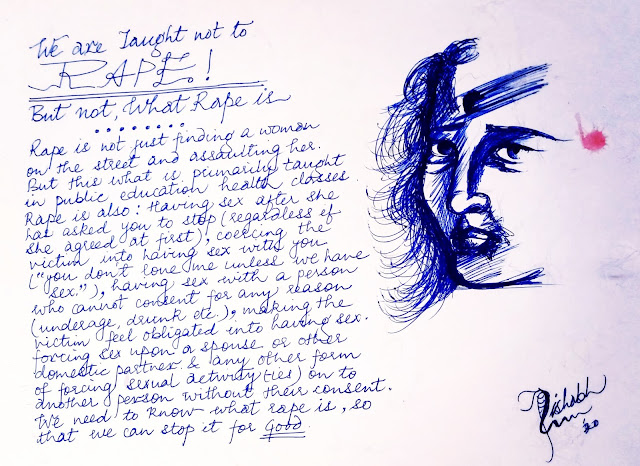 We are Taught not to
RAPE!
But not, What Rape is
Rape is not just finding a woman
on the street and assaulting her.
But this what is primarily taught
in public education health classes.
Rape is also: Having sex after she
has asked you to stop (regardless if
she agreed at first), coercing the
victim into having sex with you
("you don't love me unless we have
sex."), having sex with a person
who cannot consent for any reason
(underage, drunk etc.), making the
victim feel obligated into having sex.
forcing sex upon a spouse or other
domestic partner & any other form
of forcing sexual activity (-ies) on to
another person without their consent.
We need to know what rape is, so
that we can stop it for Good.
Rishabh
'20